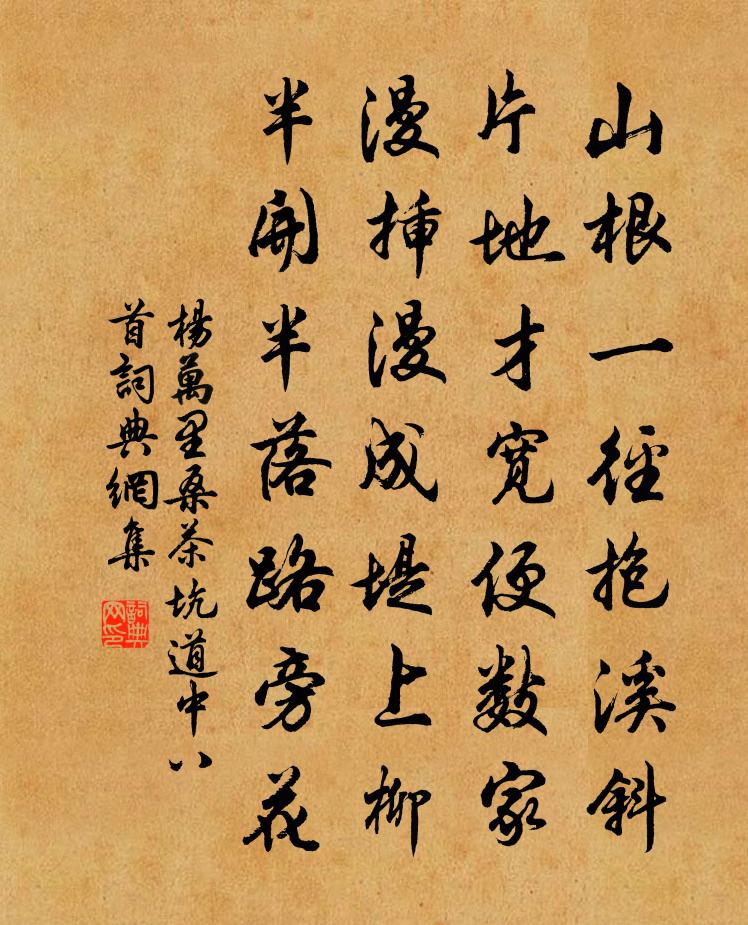 山根一徑抱溪斜
片地才寬便數家
漫插漫成堤上柳
半開半落路旁花
楊萬里桑茶坑道中八
首詞典網集
詞典網印